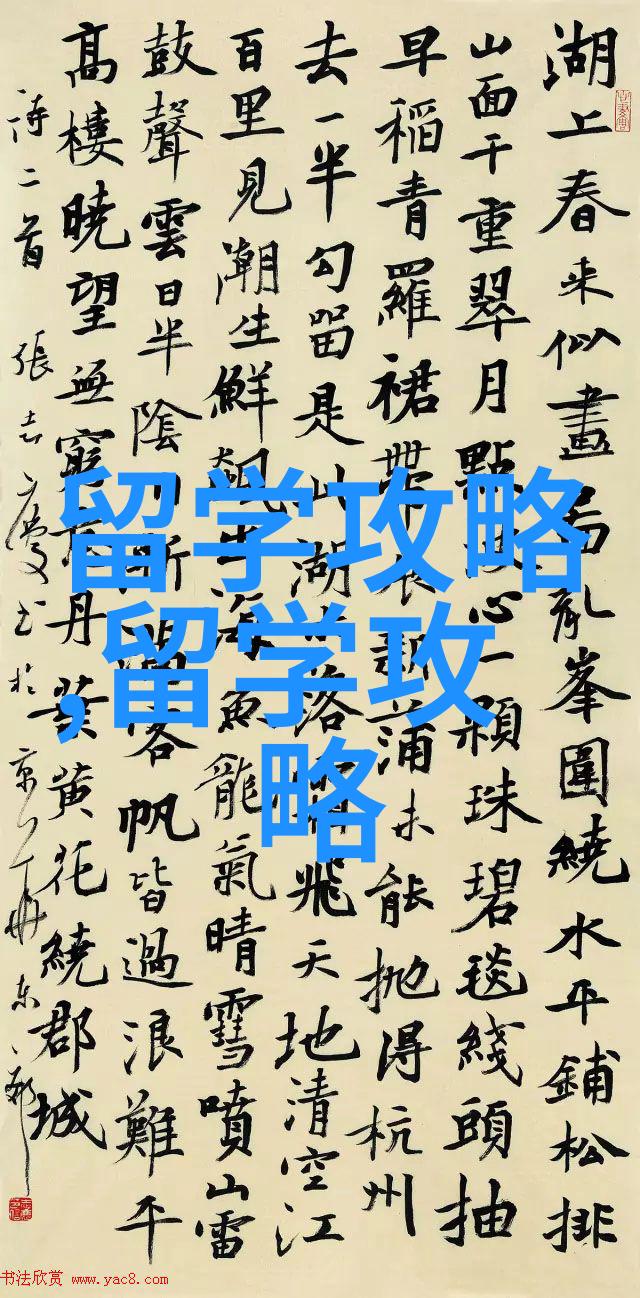 湖上春来似畫圖亂峯圍繞水平鋪松排
山面千重翠月點波心一顆珠碧毯綫頭抽
早稻青羅裙帶展新蒲未能抛得杭州
去一半勾留是此湖木落霜飛天地清空江
百里見潮生鮮飆出海魚龍氣晴雪噴山雷
鼓聲雲日半陰川漸滿客帆皆過浪難平
高樓曉望無窮意丹葉黄花繞郡城
诗二首 張志慶书於京
留学攻略
,留学攻
略
书法欣赏 www.yac8.com